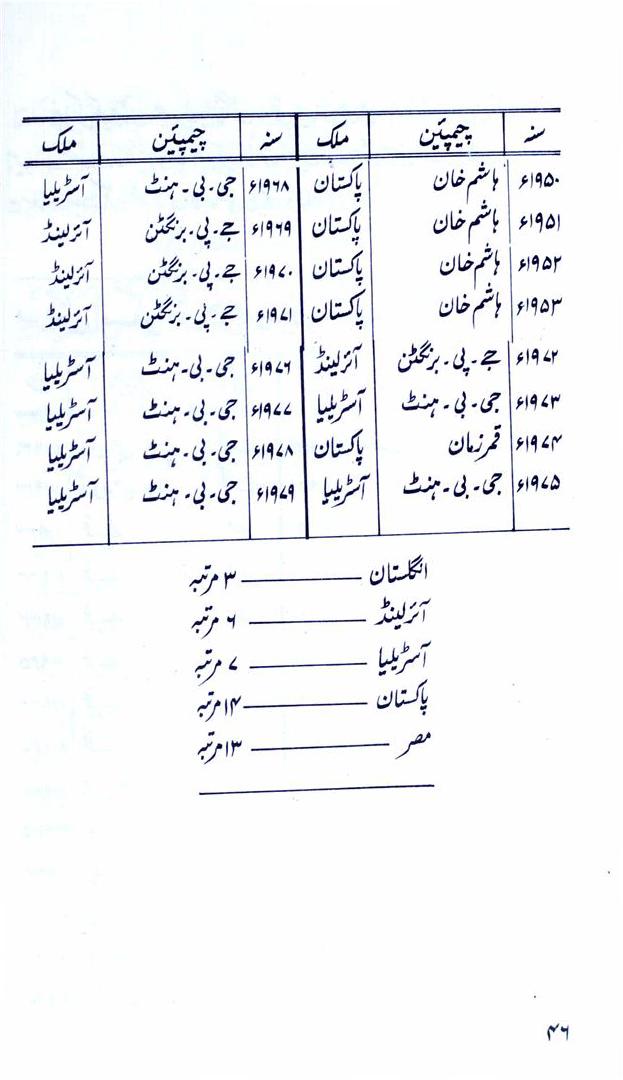 سنہ چیمپئین ملک سنہ چیمپئین ملک
۱۹۵۰ء ہاشم خان پاکستان ۱۹۶۸ء جی۔بی۔ہنٹ آسٹریلیا
۱۹۵۱ء ہاشم خان پاکستان ۱۹۶۹ء جے۔پی۔برنگٹن آئرلینڈ
۱۹۵۲ء ہاشم خان پاکستان ۱۹۷۰ء جے۔پی۔برنگٹن آئرلینڈ
۱۹۵۳ء ہاشم خان پاکستان ۱۹۷۱ء جے۔پی۔برنگٹن آئرلینڈ
۱۹۷۲ء جے۔پی۔برنگٹن آئرلینڈ ۱۹۷۶ء جی۔بی۔ہنٹ آسٹریلیا
۱۹۷۳ء جی۔بی۔ہنٹ آسٹریلیا ۱۹۷۷ء جی۔بی۔ہنٹ آسٹریلیا
۱۹۷۴ء قمر زمان پاکستان ۱۹۷۸ء جی۔بی۔ہنٹ آسٹریلیا
۱۹۷۵ء جی۔بی۔ہنٹ آسٹریلیا ۱۹۷۹ء جی۔بی۔ہنٹ آسٹریلیا
انگلستان ——— ۳ مرتبہ
آئرلینڈ ——— ۶ مرتبہ
آسٹریلیا ——— ۷ مرتبہ
پاکستان ——— ۱۴ مرتبہ
مصر ——— ۱۳ مرتبہ
۴۶